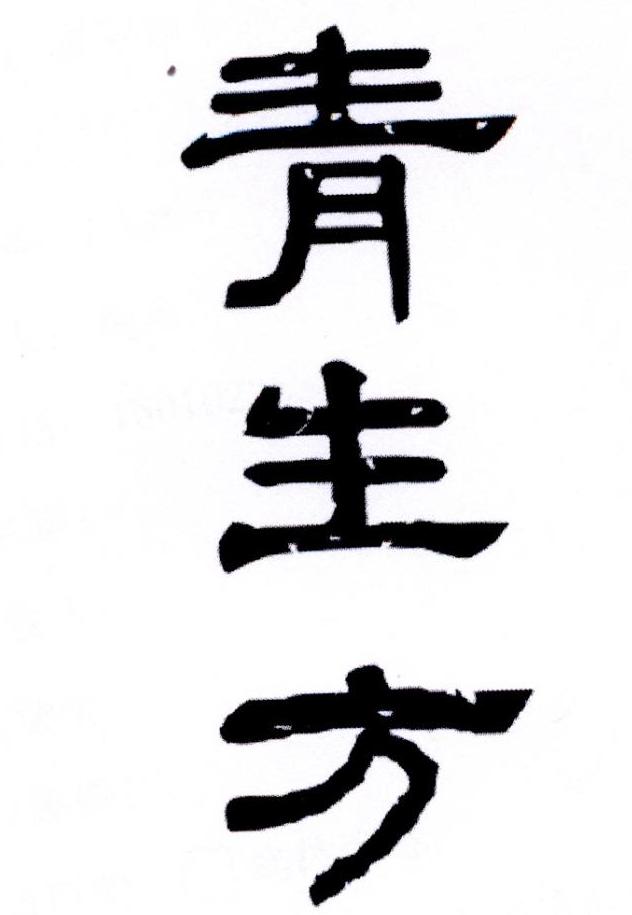 青生方